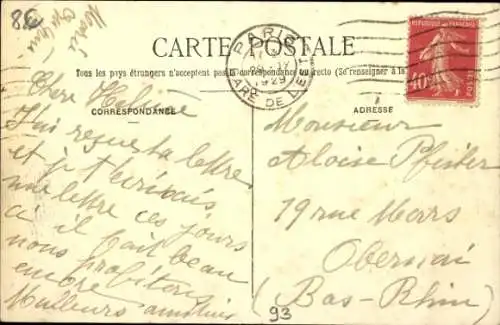 8€
CARTE POSTALE
Tous les pays étrangers n'acceptent pas la correspondance au recto (Se renseigner à la
CORRESPONDANCE
ADRESSE
PARIS
GARE DE L'EST
1929
REPUBLIQUE FRANÇAISE
40c
POSTES
Chère
J'ai reçue ta lettre
et je t'écrirais
une lettre ces jours
ci il fait beau
nous profitons
encore
Meilleurs amitiés
Monsieur
Aloise Pfister
19 rue Mars
Obernai
(Bas-Rhin)
93